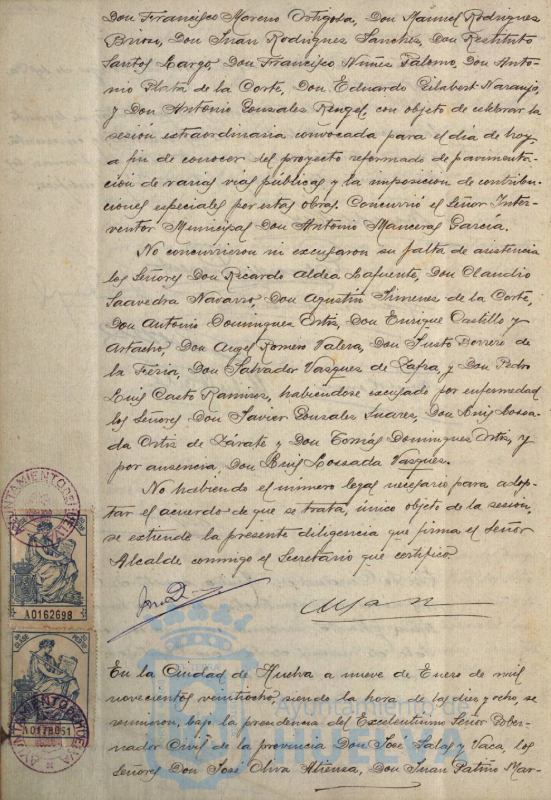 Don Francisco Moreno Ortigosa, Don Manuel Rodriguez
Brioso, Don Juan Rodriguez Sanchez, Don Restituto
Santos Largo, Don Francisco Nuñez Palomo, Don Anto-
nio Plata de la Corte, Don Eduardo Gilabert Naranjo,
y Don Antonio Gonzalez Rengel, con objeto de celebrar la
sesión extraordinaria convocada para el dia de hoy,
a fin de conocer del proyecto reformado de pavimenta-
cion de varias vias públicas y la imposicion de contribu-
ciones especiales por estas obras. Concurrió el Señor Inter-
ventor Municipal Don Antonio Manceras Garcia.
No concurrieron ni excusaron su falta de asistencia
los Señores Don Ricardo Aldea Lafuente, Don Claudio
Saavedra Navarro, Don Agustin Jimenez de la Corte,
Don Antonio Dominguez Ortiz, Don Enrique Castillo y
Artacho, Don Angel Romero Valera, Don Justo Borrero de
la Feria, Don Salvador Vazquez de Zafra, y Don Pedro
Luis Casto Ramirez, habiendose excusado por enfermedad
los Señores Don Javier Gonzalez Suarez, Don Luis Lossa-
da Ortiz de Zárate y Don Tomás Dominguez Ortiz, y
por ausencia, Don Luis Lossada Vazquez.
No habiendo el número legal necesario para adop-
tar el acuerdo de que se trata, único objeto de la sesión,
se extiende la presente diligencia que firma el Señor
Alcalde conmigo el Secretario que certifico.
AYUNTAMIENTO DE HUELVA
A0162698
A0178051
AYUNTAMIENTO DE HUELVA
En la Ciudad de Huelva a nueve de Enero de mil
novecientos veintiocho, siendo la hora de las diez y ocho, se
reunieron, bajo la presidencia del Excelentisimo Señor Gober-
nador Civil de la provincia Don José Salas y Vaca, los
Señores Don José Oliva Atienza, Don Juan Patiño Mar-
Ayuntamiento de
HUELVA